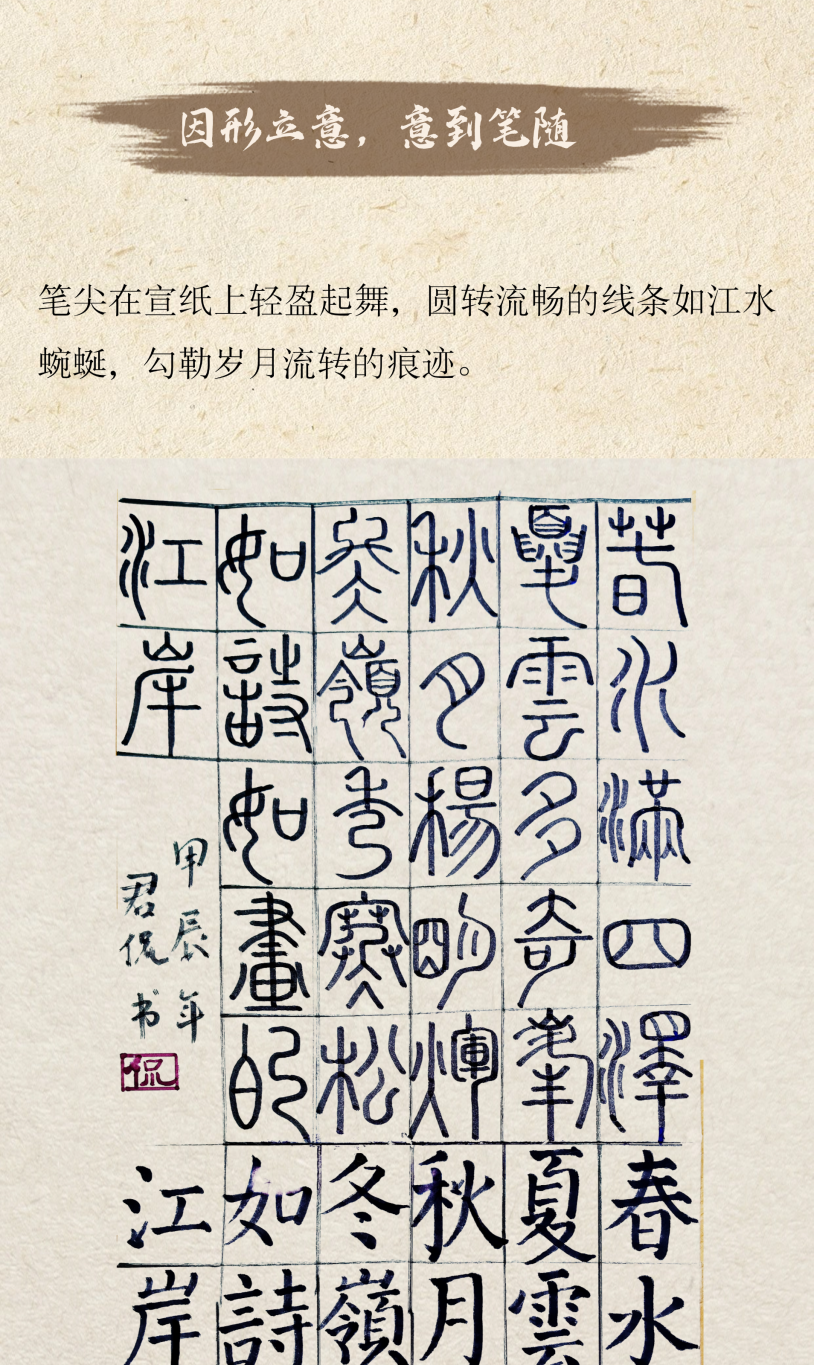 因形立意，意到笔随
笔尖在宣纸上轻盈起舞，圆转流畅的线条如江水
蜿蜒，勾勒岁月流转的痕迹。
春水滿四澤
夏雲多奇峯
秋月楊明輝
冬嶺秀寒松
如詩如畫的
江岸
甲辰年
君侃书
侃
春水
夏雲
秋月
冬嶺
如詩
江岸